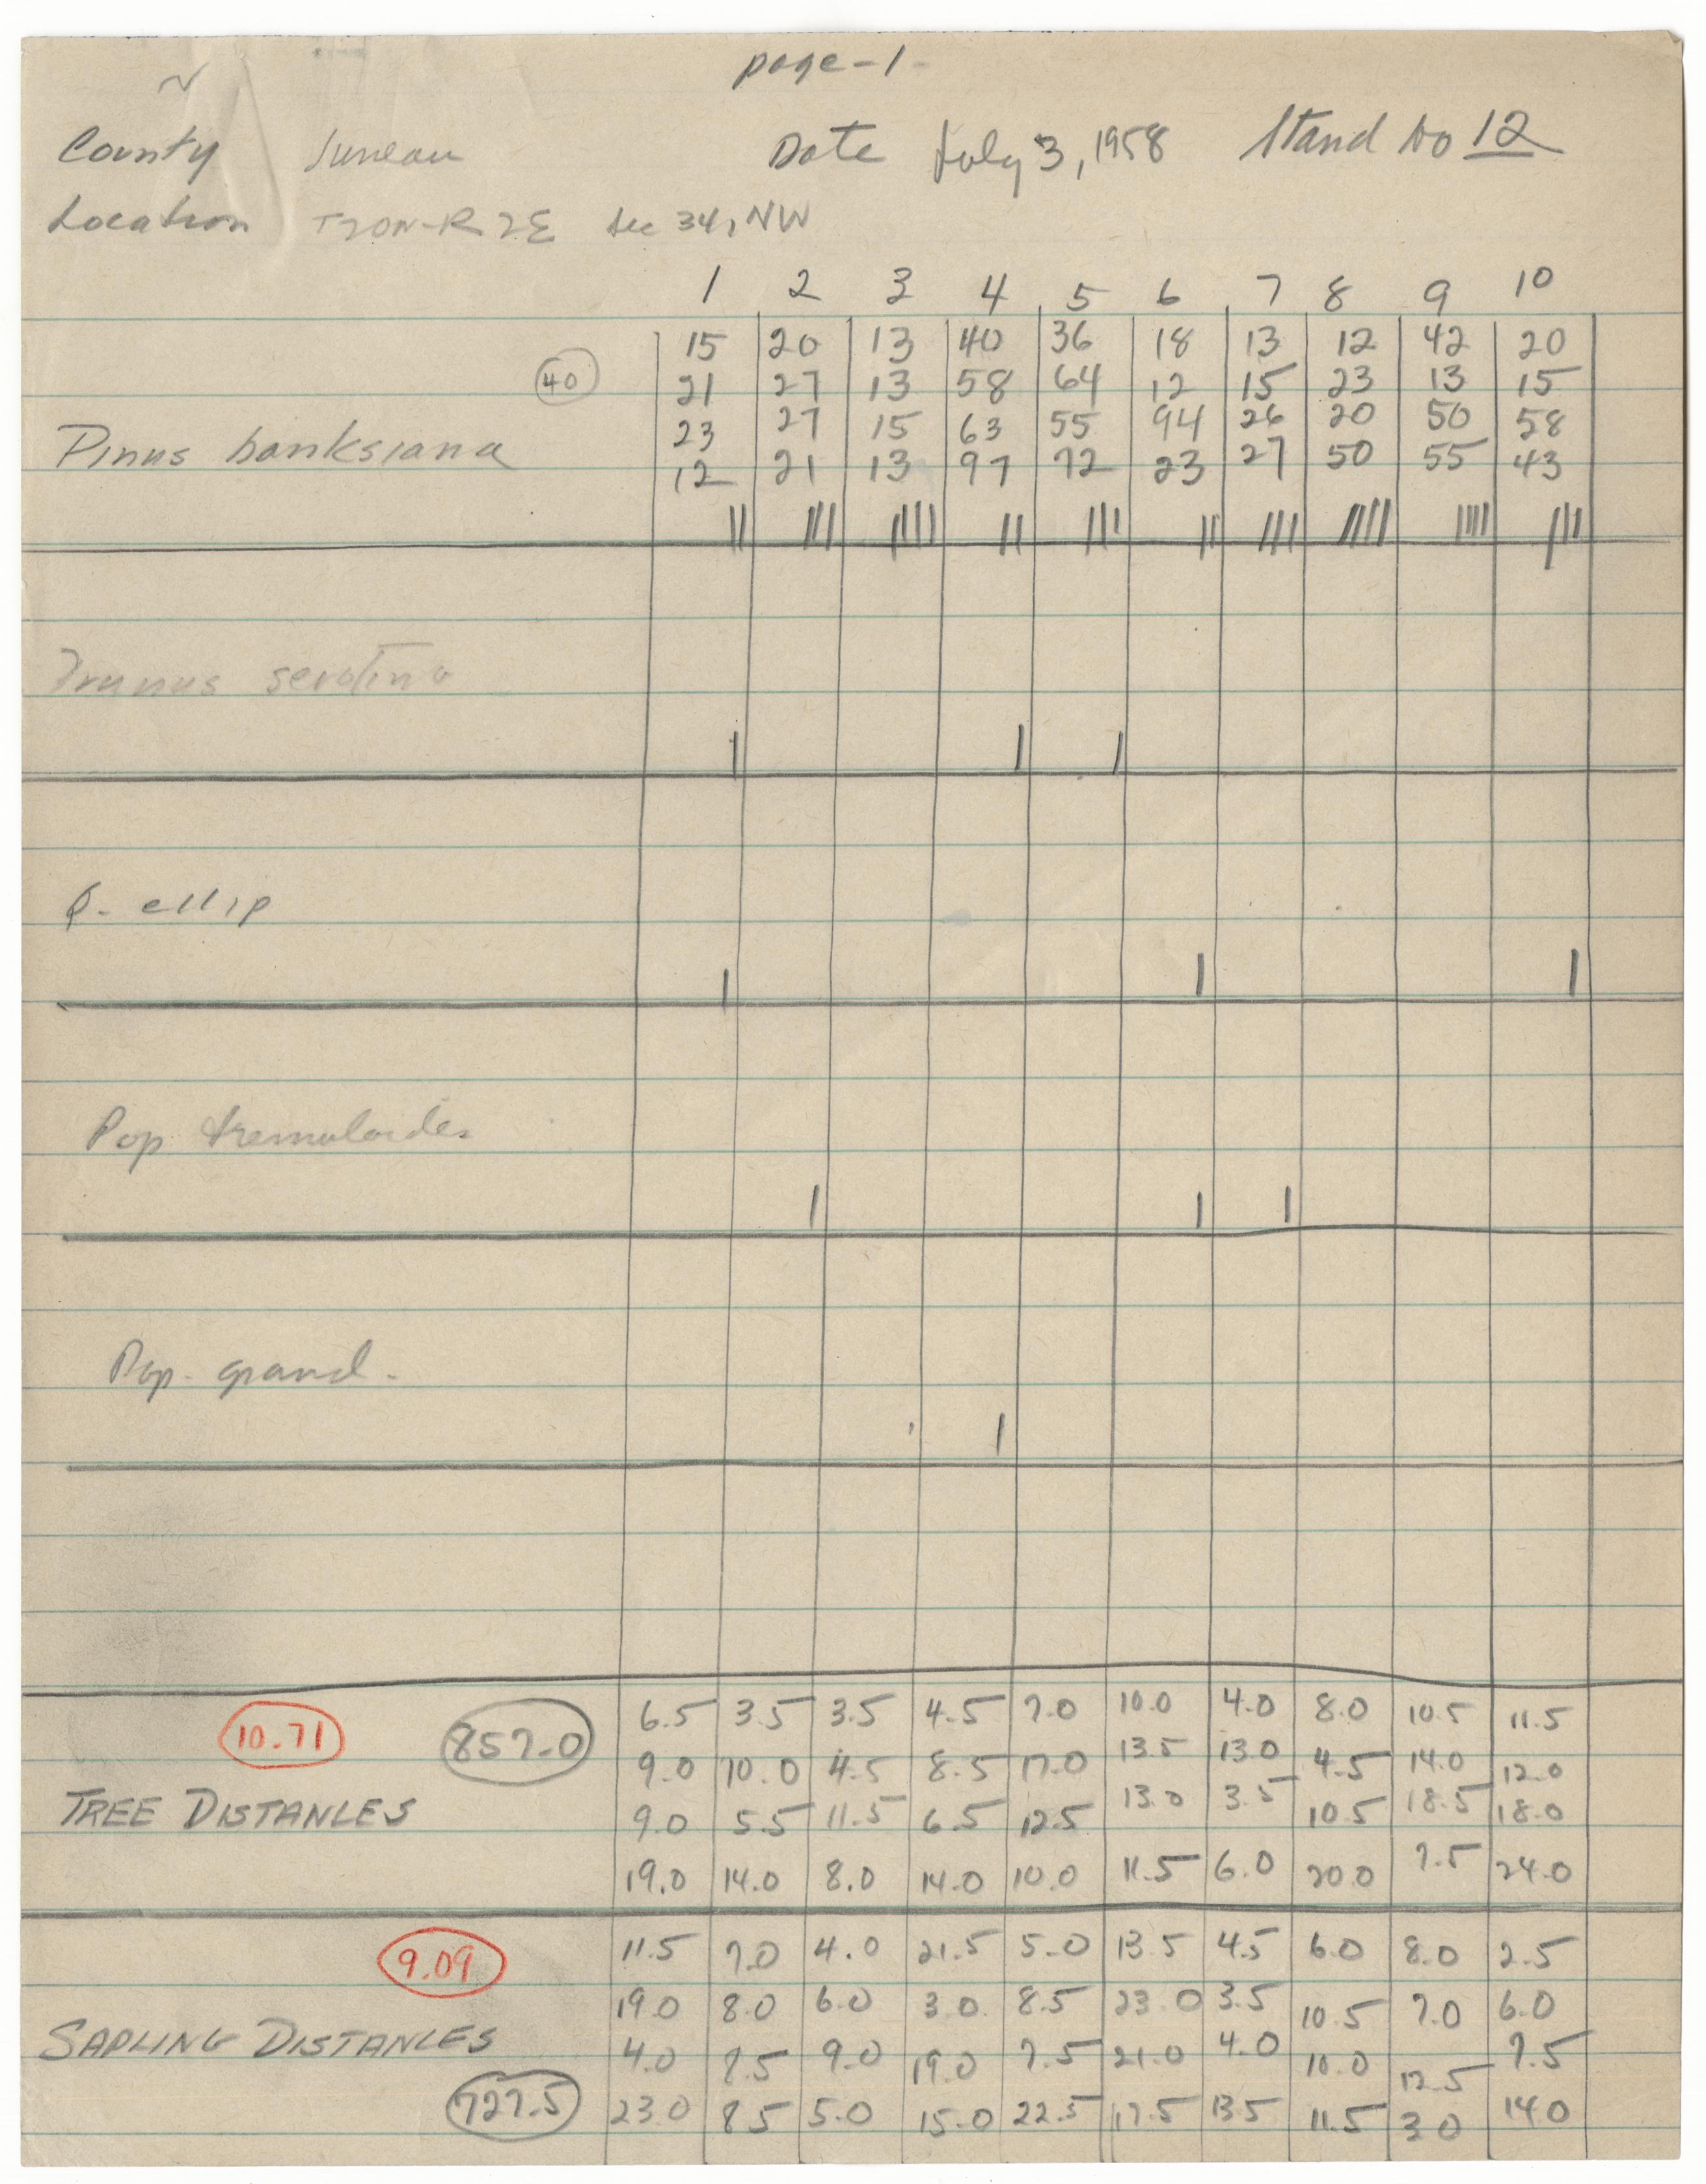 page-1-
County Juneau Date July 3, 1958 Stand No 12
Location T20N-R2E Sec 34, NW
1 2 3 4 5 6 7 8 9 10
15 20 13 40 36 18 13 12 42 20
40 21 27 13 58 64 12 15 23 13 15
Pinus banksiana 23 27 15 63 55 94 26 20 50 58
12 21 13 97 72 23 27 50 55 43
|| ||| |||| || ||| || ||| |||| |||| |||
Prunus serotina
| | |
Q. ellip
| | |
Pop tremuloides
| | |
Pop. grand.
|
10.71 857.0 6.5 3.5 3.5 4.5 7.0 10.0 4.0 8.0 10.5 11.5
9.0 10.0 4.5 8.5 17.0 13.5 13.0 4.5 14.0 12.0
TREE DISTANCES 9.0 5.5 11.5 6.5 12.5 13.0 3.5 10.5 18.5 18.0
19.0 14.0 8.0 14.0 10.0 11.5 6.0 20.0 7.5 24.0
9.09 11.5 7.0 4.0 21.5 5.0 13.5 4.5 6.0 8.0 2.5
19.0 8.0 6.0 3.0 8.5 23.0 3.5 10.5 7.0 6.0
SAPLING DISTANCES 4.0 7.5 9.0 19.0 7.5 21.0 4.0 10.0 12.5 7.5
727.5 23.0 8.5 5.0 15.0 22.5 17.5 13.5 11.5 3.0 14.0